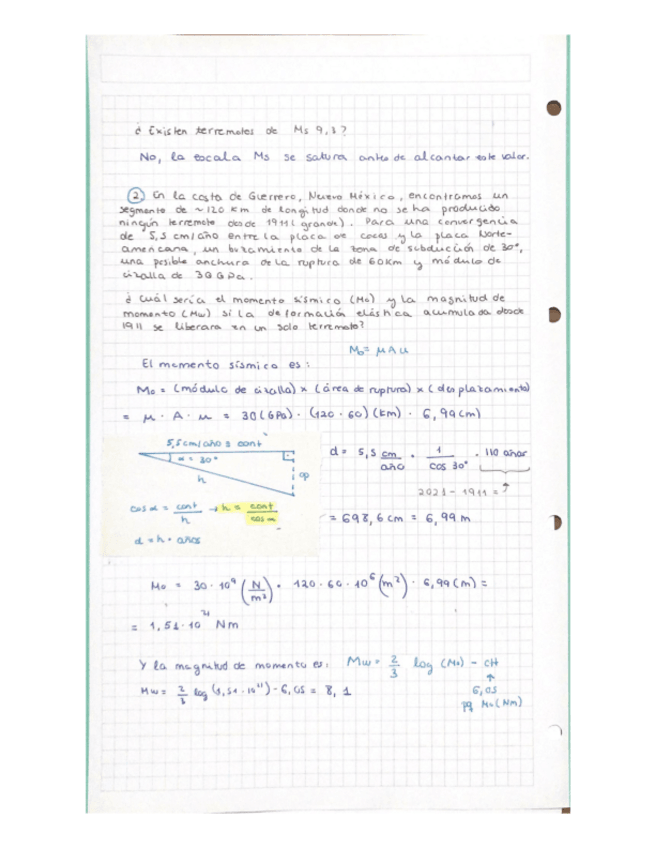 ¿Existen terremotos de Ms 9,3?
No, la escala Ms se satura antes de alcanzar este valor.
2. En la costa de Guerrero, Nuevo México, encontramos un
segmento de ~120 Km de longitud donde no se ha producido
ningún terremoto desde 1911 (grande). Para una convergencia
de 5,5 cm/año entre la placa de cocos y la placa Norte-
americana, un buzamiento de la zona de subducción de 30°,
una posible anchura de la ruptura de 60Km y módulo de
cizalla de 30 GPa.
¿Cuál sería el momento sísmico (Mo) y la magnitud de
momento (Mw) si la deformación elástica acumulada desde
1911 se liberara en un solo terremoto?
Mo = μAu
El momento sísmico es:
Mo = (módulo de cizalla) x (área de ruptura) x (desplazamiento)
= μ · A · u = 30(GPa) · (120·60)(km) · 6,99(m)
5,5cm/año = cont
α = 30°
h
op
cos α = cont/h → h = cont/cos α
d = h · años
d = 5,5 cm/año · 1/cos 30° · 110 años
2021 - 1911 =
= 698,6 cm = 6,99 m
Mo = 30·10⁹ (N/m²) · 120·60·10⁶ (m²) · 6,99 (m) =
= 1,51·10²¹ Nm
Y la magnitud de momento es: Mw = 2/3 log (Mo) - cte
Mw = 2/3 log (1,51·10²¹) - 6,05 = 8,1
6,05
pq Mo (Nm)